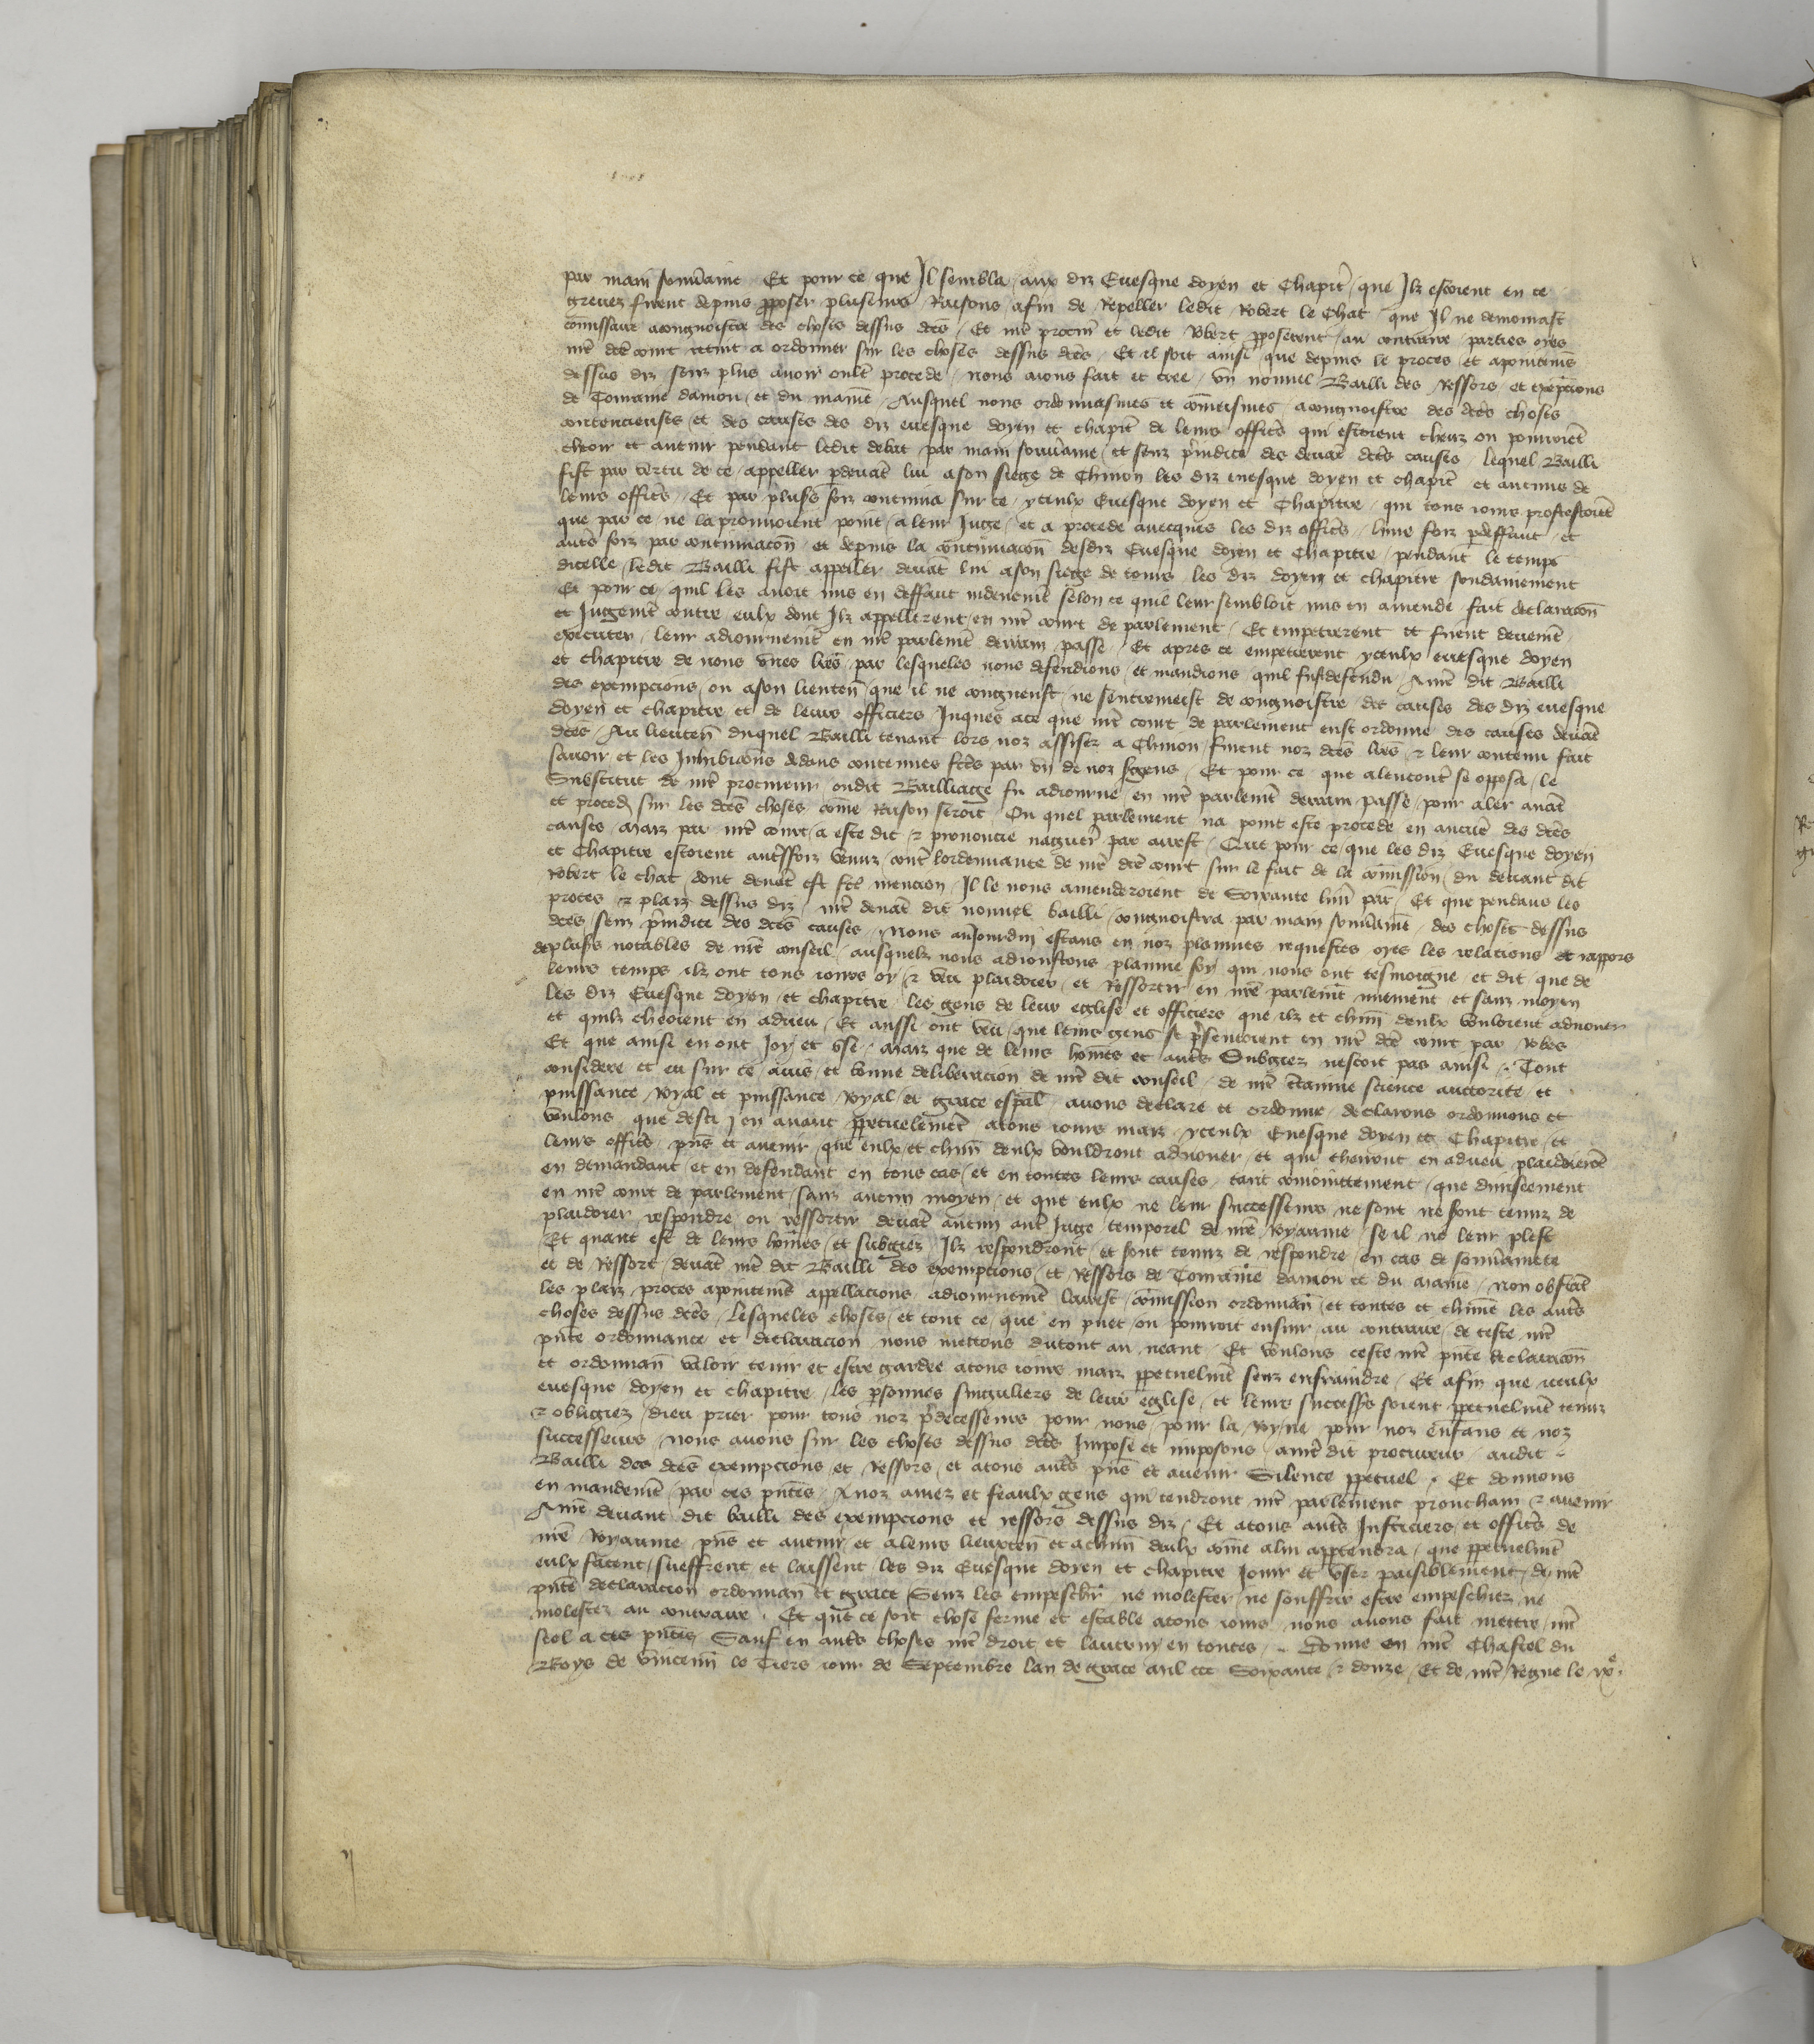 par main souv̄aine Et pour ce que Il sembla aux diz Evesque doyen et Chapit̄ que Ilz estoient en ce
grevez furent depuis p̱poser plusieurs Raisons afin de Repeller ledit Robert le Chat que Il ne demourast
cōmissaire a congnoistre des choses dessus dc̄es Et nr̄e procur̄ et ledit Robert p̱poserent au contraire parties oyes
nr̄e dc̄e court retint a ordonner sur les choses dessus dc̄es Et il soit ainsi que depuis le proces et apointemēs
dessus diz senz plus avoir oult̄ procede nous aions fait et cree un nouvel Bailli des Ressors et exēpcions
de Touraine danjou et du maine Auquel nous ordonnasmes et cōmeismes a congnoistre des dc̄es choses
contencieuses et des causes des diz evesque doyen et chapit̄ de leurs offic̄es qui estoient cheuz ou pourroiēt
cheoir et avenir pendant ledit debat par main souv̄aine et senz p̄judice des devāt dc̄es causes lequel Bailli
fist par vertu de ce appeller p̱devāt lui a son siege de Chinon les diz evesque doyen et chapit̄ et aucuns de
leurs offic̄es Et par pluss̄ foiz continua sur ce yceulx Evesque doyen et Chapitre qui tous jours protestoiēt
que par ce ne laprouvoient point a leur Juge et a procede avecques les diz offic̄es lune foiz p̱ deffaut et
aut̄e foiz par continuacōn et depuis la cōntinuacōn desdiz Evesque doyen et Chapitre pendant le temps
dicelle ledit Bailli fist appeller devāt lui a son siege de tours les diz doyen et chapitre soudainement
Et pour ce quil les avoit mis en deffaut indeuemēt selon ce quil leur sembloit mis en amende fait declaracōn
et Jugemēt contre eulx dont Ilz appellerent en nr̄e court de parlement Et empetrerent et furent deuemēt
executer leur adjournemēt en nr̄e parlemēt derrain passe Et apres ce empetrerent yceulx evesque doyen
et chapitre de nous un̄es lr̄es par lesqueles nous defendions et mandions quil fust defendu A nr̄e dit Bailli
des exempcions ou a son lieuten̄ que il ne congneust ne sentremeist de congnoistre des causes des diz evesque
doyen et chapitre et de leurs officiers Jusques a ce que nr̄e court de parlement eust ordonne des causes devāt
dc̄es Au lieuten̄ duquel Bailli tenant lors noz assises a Chinon furent noz dc̄es lr̄es ⁊ leur contenu fait
savoir et les Inhibicōns dedans contenues fc̄es par un de noz s̱gens Et pour ce que alencont̄ se opposa le
Substitut de nr̄e procureur oudit Bailliage fu adjourne en nr̄e parlemēt derrain passe pour aler avāt
et proced̄ sur les dc̄es choses cōme Raison seroit Ou quel parlement na point este procede en aucun̄e des dc̄es
causes Maiz par nr̄e court a este dit ⁊ prononcie naguer̄ par arrest Que pour ce que les diz Evesque doyen
et Chapitre estoient aut̄sfoiz venuz cont̄ lordennance de nr̄e dc̄e court sur le fait de la cōmission du devant dit
Robert le chat dont devāt est fc̄e mencion Il le nous amenderoient de Soixante livr̄ par̄ Et que pendans les
proces ⁊ plaiz dessus diz nr̄e devāt dit nouvel bailli congnoistra par main souv̄aine des choses dessus
dc̄es senz p̄judice des dc̄es causes Nous au Jourduy estans en noz plennes requestes oyes les relacions et rappors
de pluss̄ notables de nr̄e conseil ausquelz nous adjoustons plaine foy qui nous ont tesmoigne et dit que de
leurs temps ilz ont tous jours oy ⁊ veu plaidoier et Ressortir en nr̄e parlemēt nuement et sanz moyen
les diz Evesque doyen et chapitre les gens de leur eglise et officiers que ilz et chūn deulx vouloient advouer
et quilz cheoient en adveu Et aussi ont veu que leurs gens se p̄sentoient en nr̄e dc̄e court par Robes
Et que ainsi en ont Joy et use Maiz que de leurs hom̄es et aut̄es Subgiez nestoit pas ainsi Tout
considere et eu sur ce avis et bonne deliberacion de nr̄e dit conseil de nr̄e c̄taine science auctorite et
puissance Royal et puissance Royal et grace esp̄al avons declare et ordonne declarons ordonnons et
voulons que desci en avant p̱petuelemēt a tous jours maiz yceulx Evesque doyen et Chapitre et
leurs offic̄es p̄ns et avenir que eulx et chūn deulx vouldront advouer et qui cherront en adveu plaidoierōt
en demandant et en defendant en tous cas et en toutes leurs causes tant conjoinctement que diviseement
en nr̄e court de parlement sanz aucun moyen et que eulx ne leur successeurs ne sont ne sont tenuz de
plaidoier respondre ou ressortir devāt aucun aut̄ Juge temporel de nr̄e Royaume se il ne leur plest
Et quant est de leurs hom̄es et subgiez Ilz respondront et sont tenuz de respondre en cas de souv̄ainete
et de Ressort devāt nr̄e dit Bailli des exempcions et Ressors de Touraine danjou et du Maine non obstāt
les plaiz proces apointemēs appellacions adjournemēt larrest cōmission ordonnan̄ et toutes et chūne les aut̄es
choses dessus dc̄es Lesqueles choses et tout ce que en puet ou pourroit ensuir au contraire de ceste nr̄e
p̄nte ordonnance et declaracion nous mettons du tout au neant Et voulons ceste nr̄e p̄nte declaracōn
et ordonnan̄ valoir tenir et estre gardee a tous jours maiz p̱petuelmēt senz enfraindre Et afin que iceulx
evesque doyen et chapitre les p̱sonnes singuliers de leur eglise et leurs success̄s soient p̱petuelmēt tenuz
⁊ obligiez dieu prier pour tous noz p̄decesseurs pour nous pour la Royne pour noz enfans et noz
successeurs nous avons sur les choses dessus dc̄es Impose et imposons a nr̄e dit procureur audit
Bailli des dc̄es exempcions et Ressors et a tous aut̄es p̄ns et avenir Silence p̱petuel Et donnons
en mandemēt par ces p̄ntes A noz amez et feaulx gens qui tendront nr̄e parlement prouchain ⁊ avenir
A nr̄e devant dit bailli des exempcions et ressors dessus diz Et a tous aut̄es Justiciers et offic̄es de
nr̄e Royaume p̄ns et avenir et a leurs lieuxten̄ et a chūn deulx cōme a lui app̱tendra que p̱petuelmēt
eulx facent sueffrent et laissent les diz Evesque doyen et chapitre Jouir et user paisiblement de nr̄e
p̄nte declaracion ordonnan̄ et grace Senz les empeschier ne molester ne souffrir estre empeschiez ne
molestez au contraire Et que ce soit chose ferme et estable a tous jours nous avons fait mettre nr̄e
seel a ces p̄ntes Sauf en aut̄es choses nr̄e droit et lautruy en toutes Donne en nr̄e Chastel du
Boys de Vincenn̄ le Tiers jour de Septembre lan de grace mil ccc Soixante ⁊ douze Et de nr̄e Regne le ixᵉ